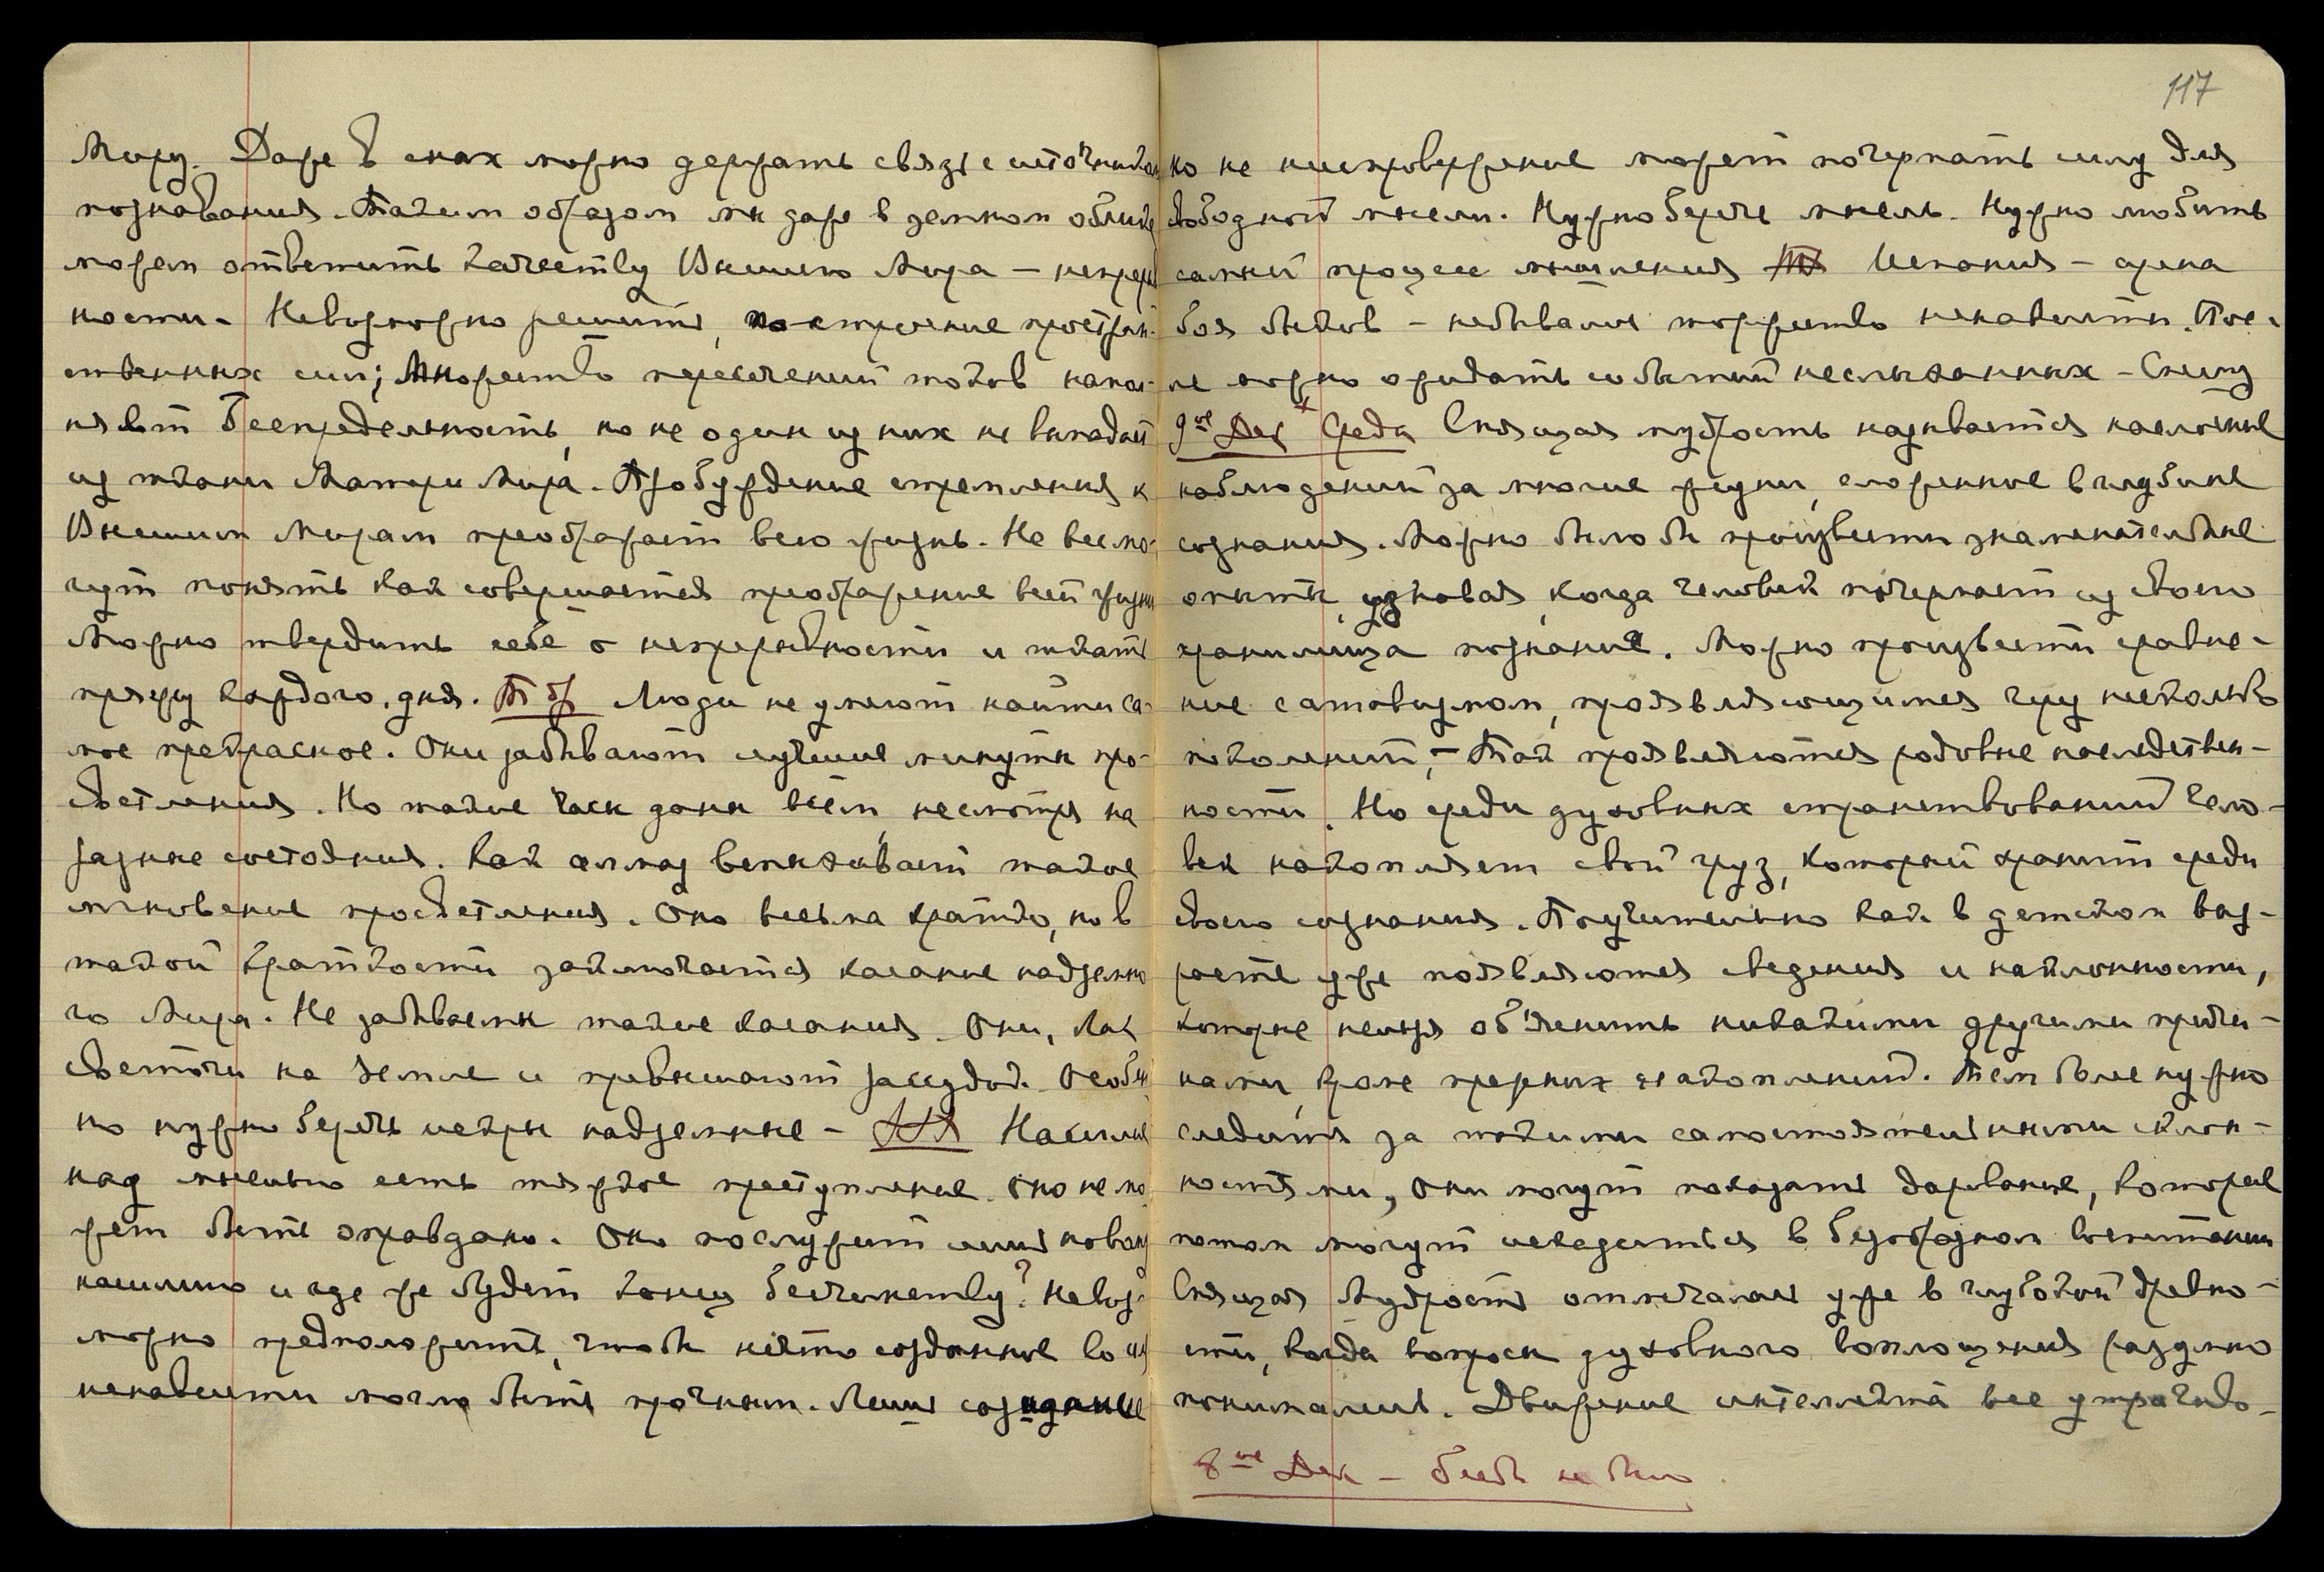 Миру. Даже в снах можно держать связь с источником
познавания. Таким образом мы даже в земном облике
можем ответить качеству Высшего Мира – непрерыв
ности. Невозможно решить, построение простран-
ственных сил; Множество пересечений токов напол-
няет Беспредельность, но не один из них не выпадает
из ткани Матери Мира. Пробуждение стремления к
Высшим Мирам преображает всю жизнь. Не все мо-
гут понять как совершается преображение всей жизни
Можно твердить себе о непрерывности и ткать
пряжу каждого дня. Люди не умеют найти са-
мое прекрасное. Они забывают лучшие минуты про-
светления. Но такие часы даны всем несмотря на
разные состояния. Как алмаз вспыхивает такое
мгновение просветления. Оно весьма кратко, но в
такой краткости заключается касание надземно
го Мира. Не забываемы такие касания. Они, как
светочи на земле и превышают рассудок. Особен
но нужно беречь искры надземные – Насилие
над мыслью есть тяжкое преступление. Оно не мо
жет быть оправдано. Оно послужит лишь новому
насилию и где же будет конец бесчинству? Невоз-
можно предположить, чтобы нечто созданное во имя
ненависти могло быть прочным. Лишь созидание
117
но не ниспровержение может почерпать силу для
свободной мысли. Нужно беречь мысль. Нужно любить
самый процесс мышления Испания – арена
боя быков – небывалое торжество ненависти. Пос-
ле можно ожидать событий неслыханных – Снизу
9ое Дек Среда Спящая мудрость называется наслоение
наблюдений за многие жизни, сложенное в глубине
сознания. Можно было бы произвести знаменательные
опыты, узнавая, когда человек почерпает из своего
хранилища познание. Можно произвести сравне-
ние с атавизмом, проявляющимся чрез несколько
поколений, – Так проявляются родовые наследствен-
ности. Но среди духовных странствований чело-
век накопляет свой груз, который хранит среди
своего сознания. Поучительно как в детском воз-
расте уже появляются сведения и наклонности,
которые нельзя об'яснить никакими другими причи-
нами, кроме прежних накоплений. Тем более нужно
следить за такими самостоятельными склон-
ностями, они могут показать дарование, которые
потом могут исказиться в безобразном воспитании
Спящая Мудрость отмечалась уже в глубокой древно-
сти, когда вопросы духовного воплощения разумно
понимались. Движение интеллекта все утрачива-
8ое Дек – бесед не было